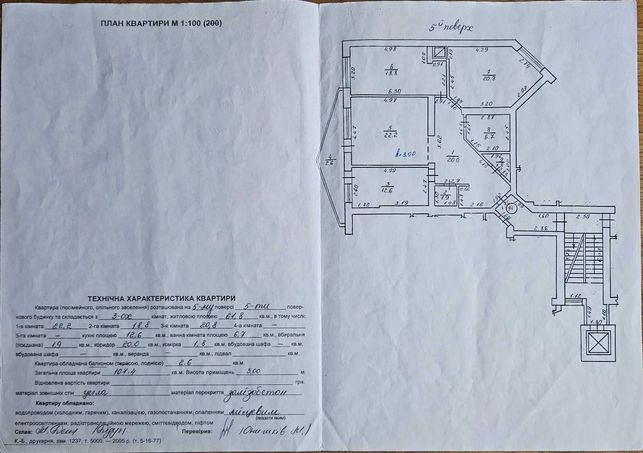 ПЛАН КВАРТИРИ М 1:100 (200)
5й поверх
4.98
4.29
3.20
6
18.8
1.09
0.91
2.10
7
20.8
2.79
6.30
2.21
2.48
4.97
3.20
2.07
4.47
5
22.2
h=3.00
3.62
1
20.0
2.87
8
6.7
2.45
2.10
4
2.6
4.99
3
12.6
2.60
2.47
1.20
3.19
1.9
1.48
2.16
1.60
2.50
2.36
1.12
1.90
ТЕХНІЧНА ХАРАКТЕРИСТИКА КВАРТИРИ
Квартира (посімейного, спільного заселення) розташована на 5-му 5-ти поверхового будинку
та складається з 3-ох кімнат, житловою площею 61.8 кв.м., в тому числі:
1-а кімната 22.2 2-га кімната 18.8 3-я кімната 20.8 4-а кімната –
5-та кімната – кухні площею 12.6 кв.м, ванна кімната площею 6.7 кв.м, вбиральня
(поєднана) 1.9 кв.м, коридор 20.0 кв.м, комірка 1.8 кв.м, вбудована шафа – кв.м,
вбудована шафа – кв.м, веранда – кв.м, підвал кв.м.
Квартира обладнана балконом (терасою, лоджією) 2.6 кв.м.
Загальна площа квартири 107.4 кв.м. Висота приміщень 3.00 м.
Відновлена вартість квартири грн.
матеріал зовнішніх стін цегла матеріал перекриття залізобетон
Квартиру обладнано:
водопроводом (холодним, гарячим), каналізацією, газопостачанням, опаленням місцевим
(вказати яким)
електроосвітленням, радіотрансляційною мережею, сміттєвідводом, ліфтом
Склав: Перевірив:
К.-Б., друкарня, зам. 1237, т. 5000. — 2005 р. (т. 5-16-77)